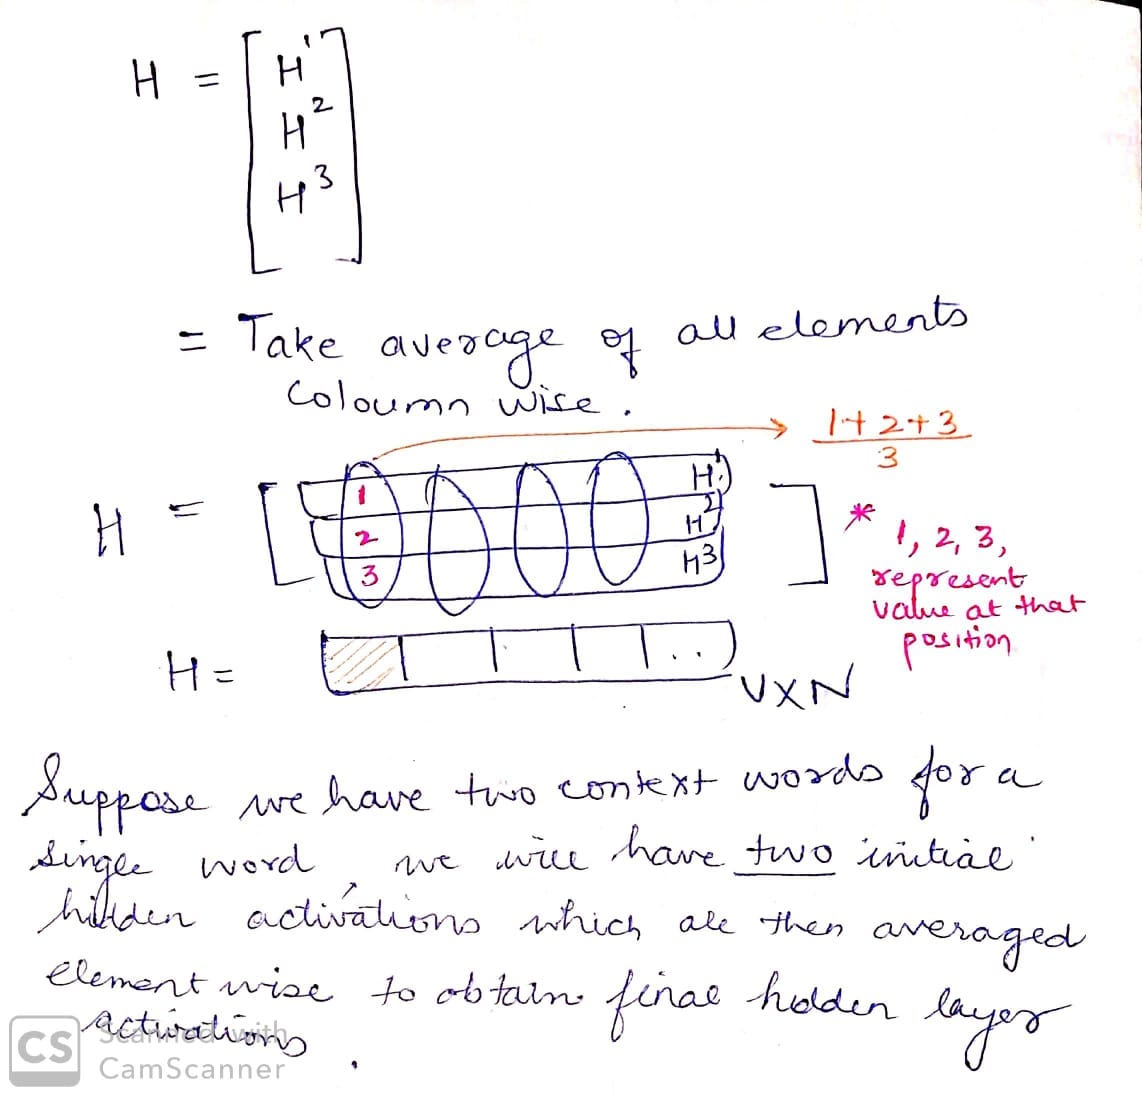 H = [ H¹
H²
H³ ]
= Take average of all elements
Coloumn wise.
1+2+3
3
H = [ 1 H¹
2 H²
3 H³ ]
* 1, 2, 3,
represent
value at that
position
H = . . VXN
Suppose we have two context words for a
single word, we will have two initial
hidden activations which are then averaged
element wise to obtain final hidden layer
activations.
CS Scanned with
CamScanner